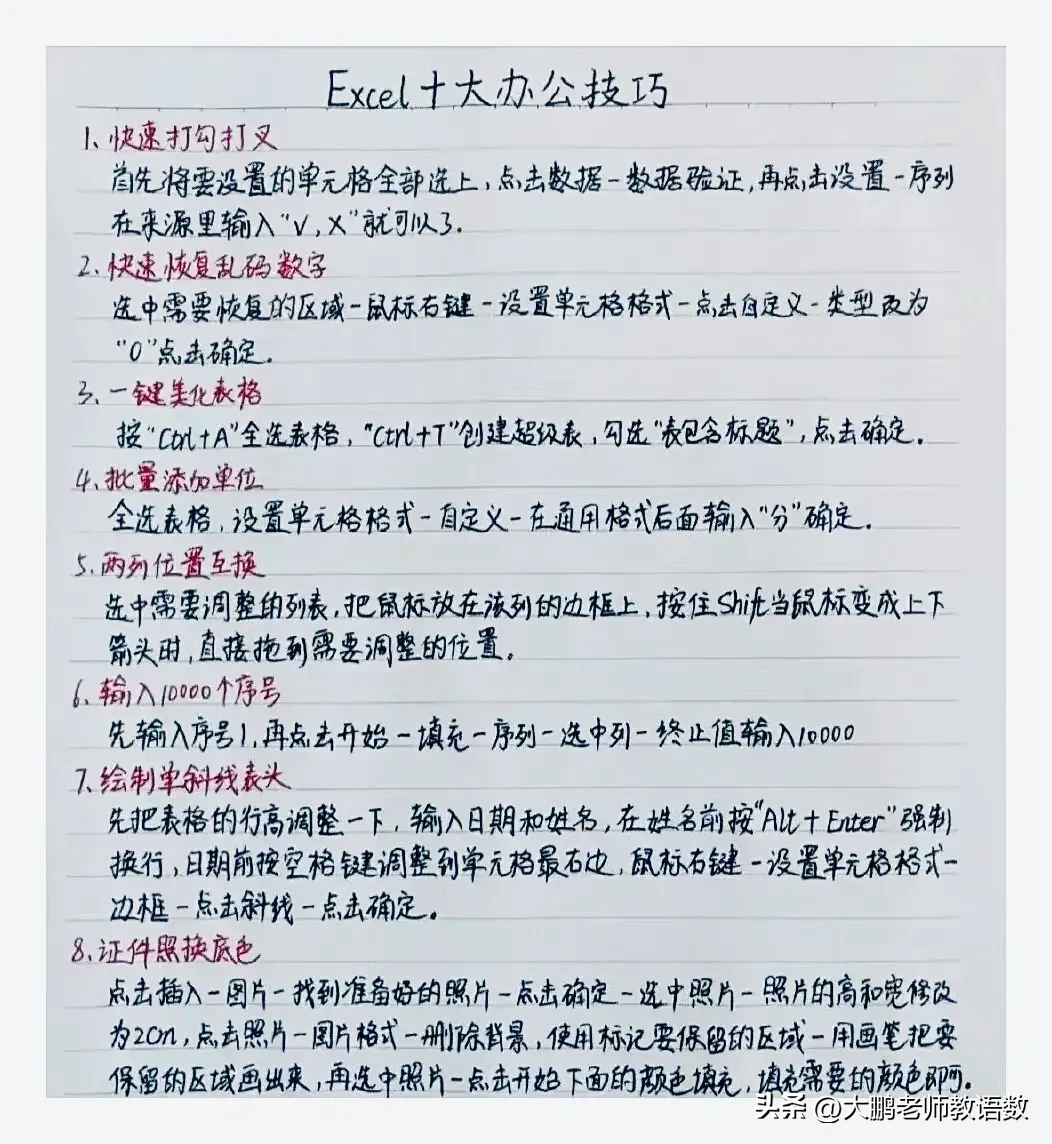 Excel十大办公技巧
1、快速打勾打叉
首先将要设置的单元格全部选上,点击数据-数据验证,再点击设置-序列
在来源里输入"√,X"就可以了.
2、快速恢复乱码数字
选中需要恢复的区域-鼠标右键-设置单元格格式-点击自定义-类型改为
"0"点击确定。
3、一键美化表格
按"Ctrl+A"全选表格,"Ctrl+T"创建超级表,勾选"表包含标题",点击确定。
4、批量添加单位
全选表格,设置单元格格式-自定义-在通用格式后面输入"分"确定。
5、两列位置互换
选中需要调整的列表,把鼠标放在该列的边框上,按住Shift当鼠标变成上下
箭头时,直接拖到需要调整的位置。
6、输入10000个序号
先输入序号1,再点击开始-填充-序列-选中列-终止值输入10000
7、绘制单斜线表头
先把表格的行高调整一下,输入日期和姓名,在姓名前按"Alt+Enter"强制
换行,日期前按空格键调整到单元格最右边,鼠标右键-设置单元格格式-
边框-点击斜线-点击确定。
8、证件照换底色
点击插入-图片-找到准备好的照片-点击确定-选中照片-照片的高和宽修改
为2cm,点击照片-图片格式-删除背景,使用标记要保留的区域-用画笔把要
保留的区域画出来,再选中照片-点击开始下面的颜色填充,填充需要的颜色即可。
头条 @大鹏老师教语数